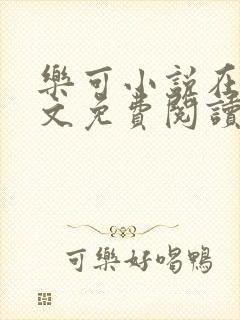 樂可小说在
文免費閱讀
可樂好喝鴨